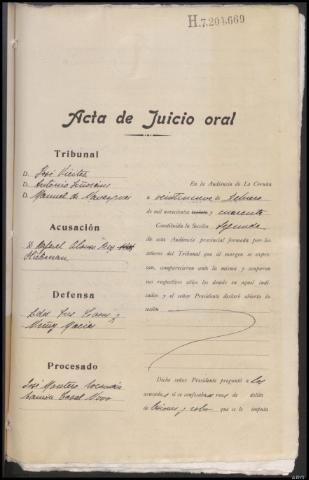 H.7.204.669
Acta de Juicio oral
Tribunal
D. José
D. Antonio
D. Manuel de
Acusación
D. Rafael Alonso
Defensa
Ldos
Muñiz Macías
Procesado
José Montero
Ramón Casal Novo
En la Audiencia de La Coruña
a veintinueve de febrero
de mil novecientos cuarenta
Constituída la Sección Segunda
de esta Audiencia provincial formada por los
señores del Tribunal que al margen se expre-
san, comparecieron ante la misma y ocuparon
sus respectivos sitios los demás en aquel indi-
cados y el señor Presidente declaró abierta la
sesión
Dicho señor Presidente preguntó a los
acusados si se confesaban reos de delito
de lesiones y robo que se le imputa